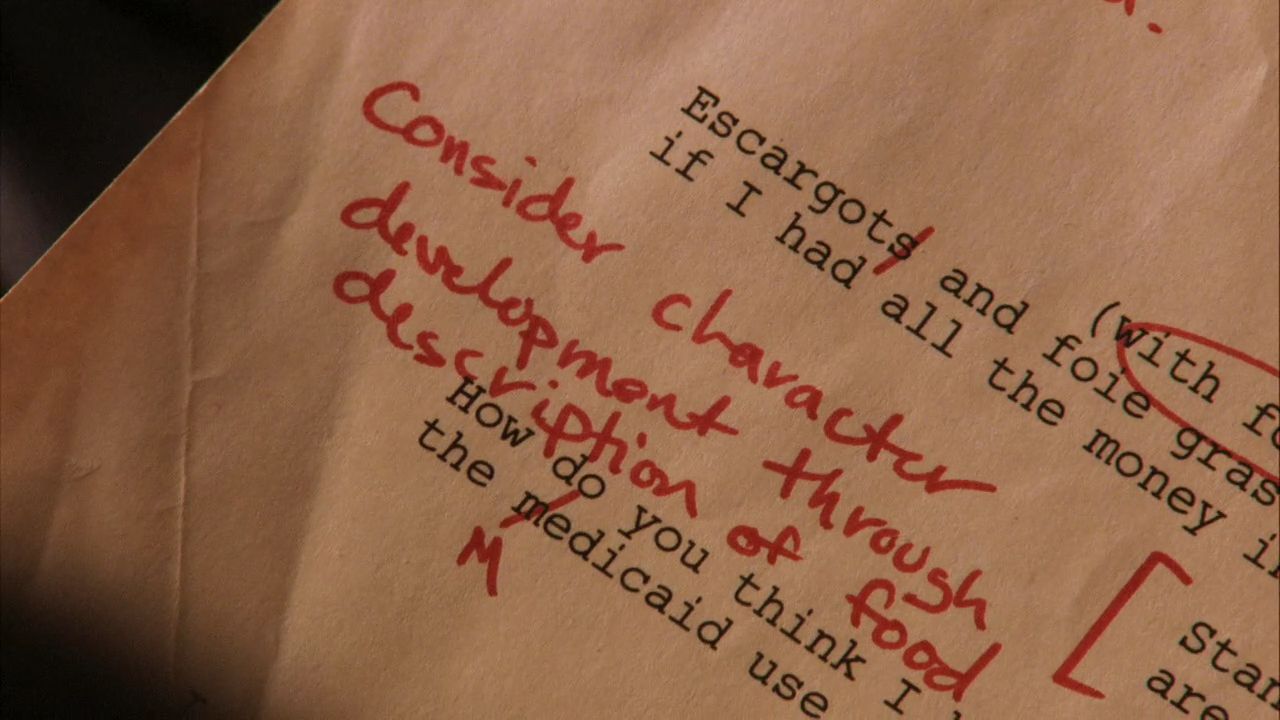 Escargots and (with
if I had all the money
foie gras
Consider character
development through
description of food
How do you think I
the medicaid use
M
are